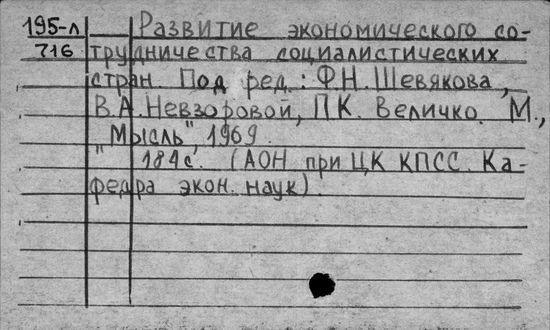 195-л Развитие экономического со-
716 трудничества социалистических
стран. Под ред.: Ф.Н. Шевякова,
В.А. Невзоровой, П.К. Величко. М.,
"Мысль", 1969.
184с. (АОН при ЦК КПСС. Ка-
федра экон. наук).